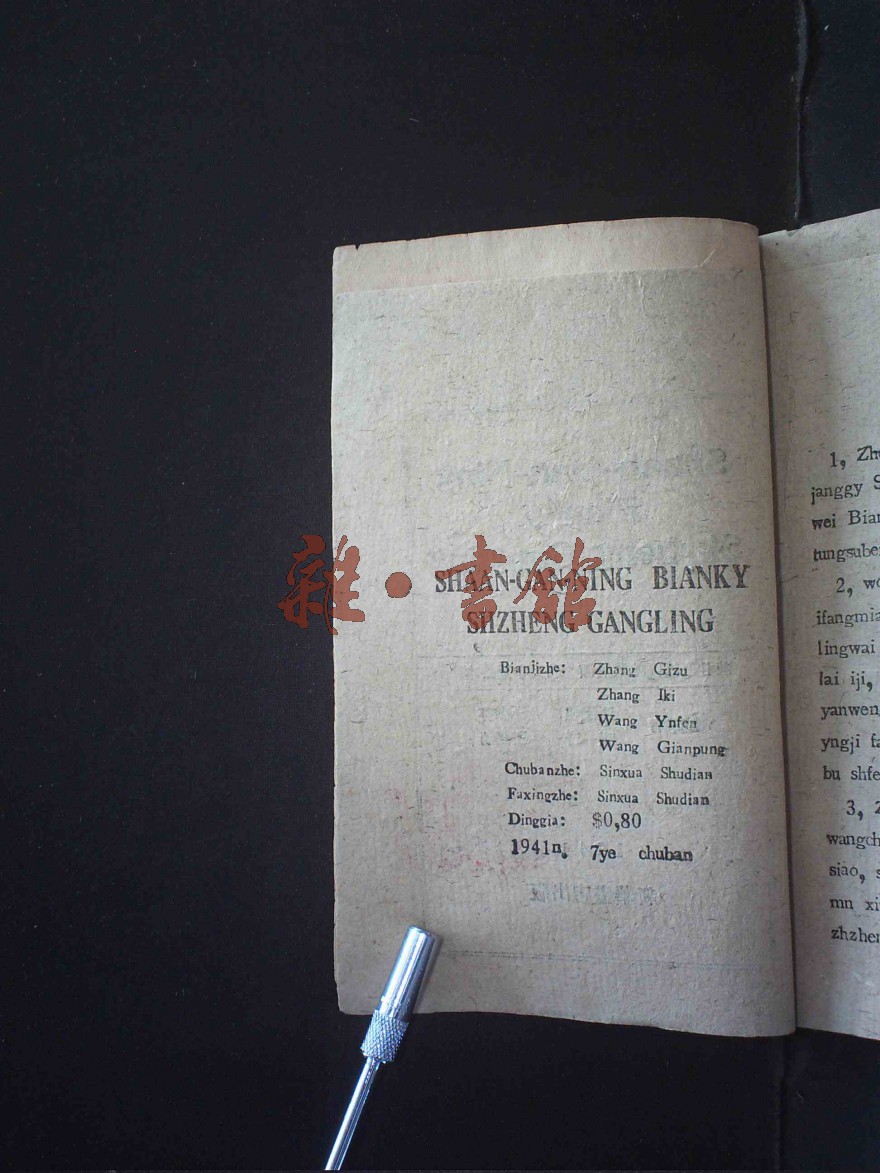 雜·書館
SHAAN-GAN-NING BIANKY
SHZHENG GANGLING
Bianjizhe: Zhang Gizu
Zhang Iki
Wang Ynfen
Wang Gianpung
Chubanzhe: Sinxua Shudian
Faxingzhe: Sinxua Shudian
Dinggia: $0,80
1941n. 7ye chuban
1,
janggy
wei
2,
lingwai
lai iji,
bu
3,
siao,
mn